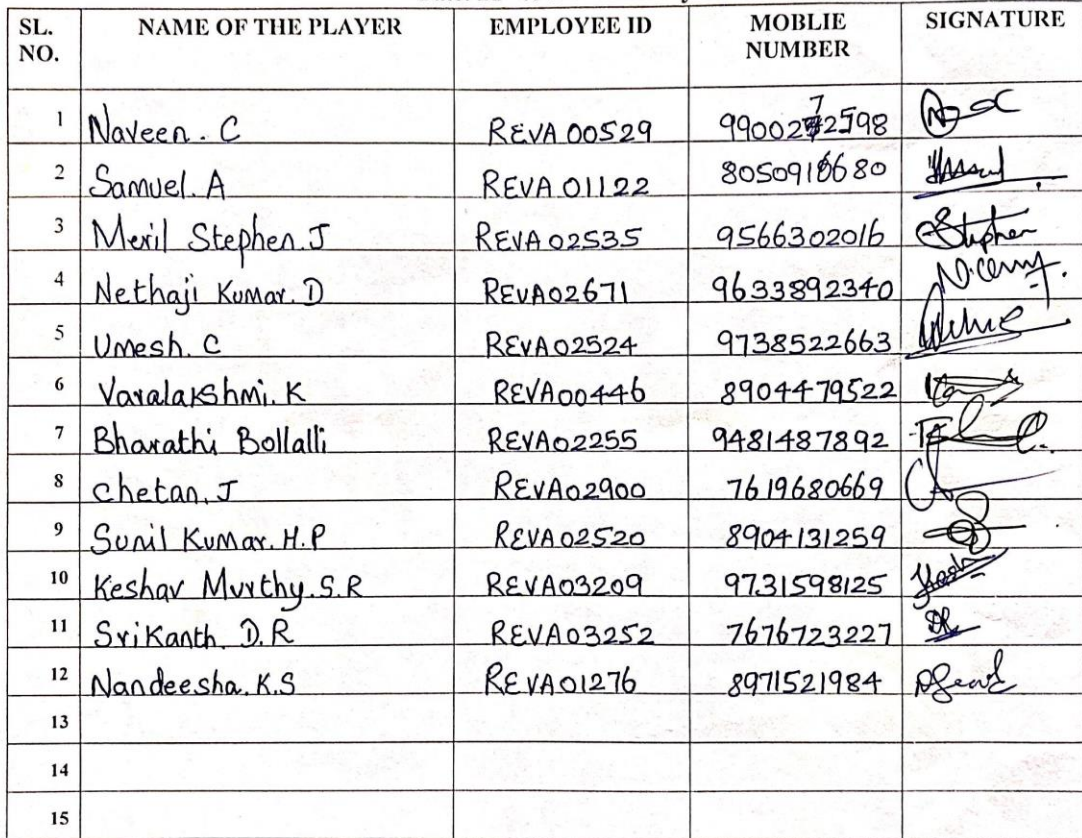 SL. NO. NAME OF THE PLAYER EMPLOYEE ID MOBLIE NUMBER SIGNATURE
1 Naveen. C REVA 00529 9900272598
2 Samuel. A REVA 01122 8050918680
3 Meril Stephen. J REVA 02535 9566302016 Stephen
4 Nethaji Kumar. D REVA02671 9633892340
5 Umesh. C REVA 02524 9738522663
6 Varalakshmi. K REVA00446 8904479522
7 Bharathi Bollalli REVA02255 9481487892
8 Chetan. J REVA02900 7619680669
9 Sunil Kumar. H.P REVA02520 8904131259
10 Keshav Murthy. S.R REVA03209 9731598125
11 Srikanth. D.R REVA03252 7676723227
12 Nandeesha. K.S REVA01276 8971521984
13
14
15